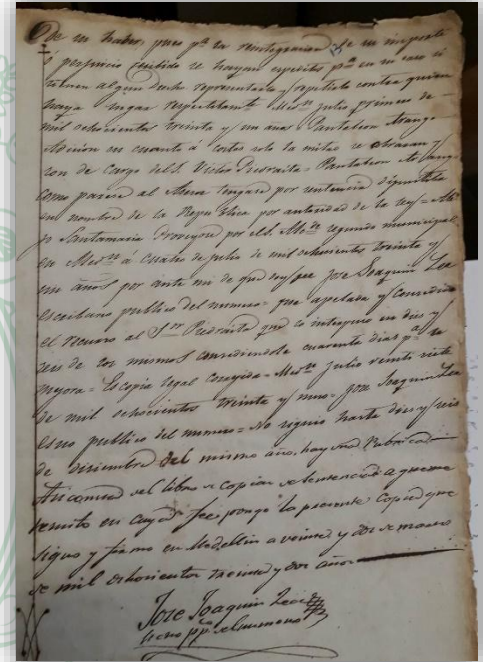 de su haber, pues pª la reintegracion de su importe
ó perjuicio recibido se hayan espeditos pª en su caso si
tubieren algun dec̃ho representarlo y repetirlo contra quien
haya lugar respectibamte Medn julio primero de
mil ochocientos treinta y un años = Pantaleon Arango
Adicion en cuanto á costas solo la mitad se abrazan y
son de cargo del S. Piedraita = Pantaleon Arango
Como parece al Asesor tengase por sentencia difinitiba
en nombre de la Republica por autoridad de la ley =
Santamaria Proveyola por el S. Alcde segundo municipal
en Medn á cuatro de julio de mil ochocientos treinta y
un años por ante mi de que doy fee Jose Joaquin Zea
escribano publico del numero = fue apelada y concedido
el recurso al Sor Piedraita que lo interpuso en dies y
seis de los mismos concediendole cuarenta dias pª la
mejora = Es copia legal corregida = Medn julio veinte siete
de mil ochocientos treinta y uno = Jose Joaquin Zea
esno publico del numero = No siguio hasta dies y seis
de diciembre del mismo año, hay una Rubrica
del libro copiador de sentencias a que me
remito en cuya fee pongo la presente copia que
signo y firmo en Medellin a veinte y dos de marzo
de mil ochocientos treinta y dos años
Jose Joaquin Zea
esno ppco del numero